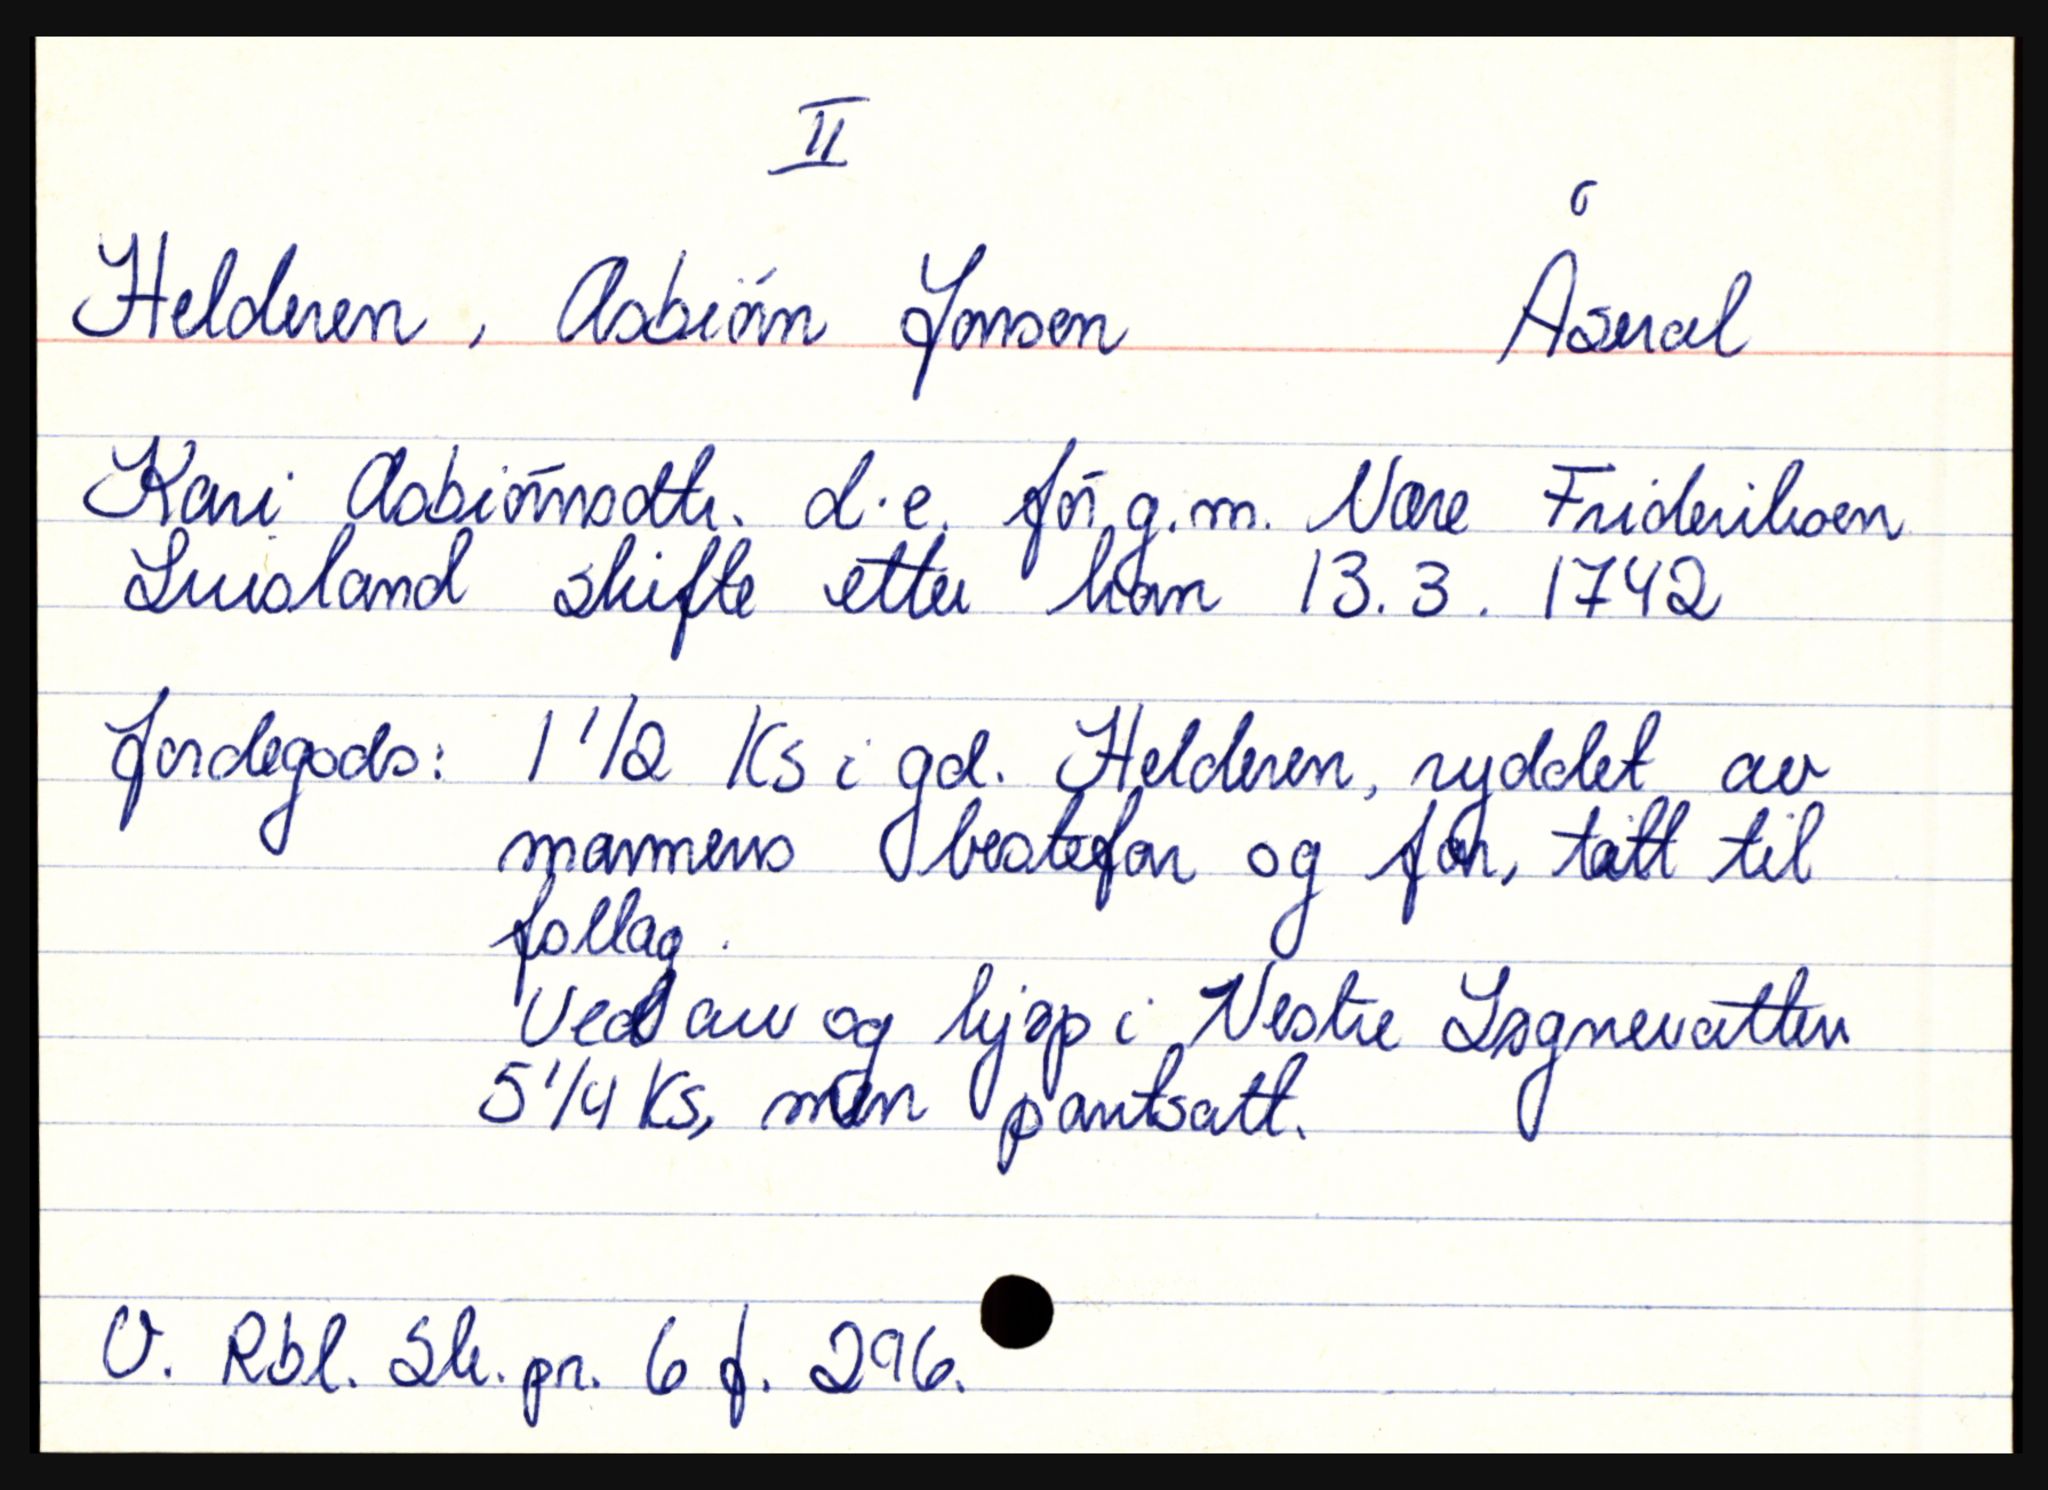 II
Helderen, Asbiörn Jonsen Åseral
Kari Asbiörnsdtr. d.e. för g.m. Nare Frideriksen
Liusland skifte etter han 13.3. 1742
Jordegods: 1 1/2 Ks i gd. Helderen, ryddet av
mannens bestefar og far, tatt til
follag.
Ved arv og kjøp i Vestre Løgnevatten
5 1/4 Ks, men pantsatt.
V. Rbl. Sk. pr. 6 f. 296.